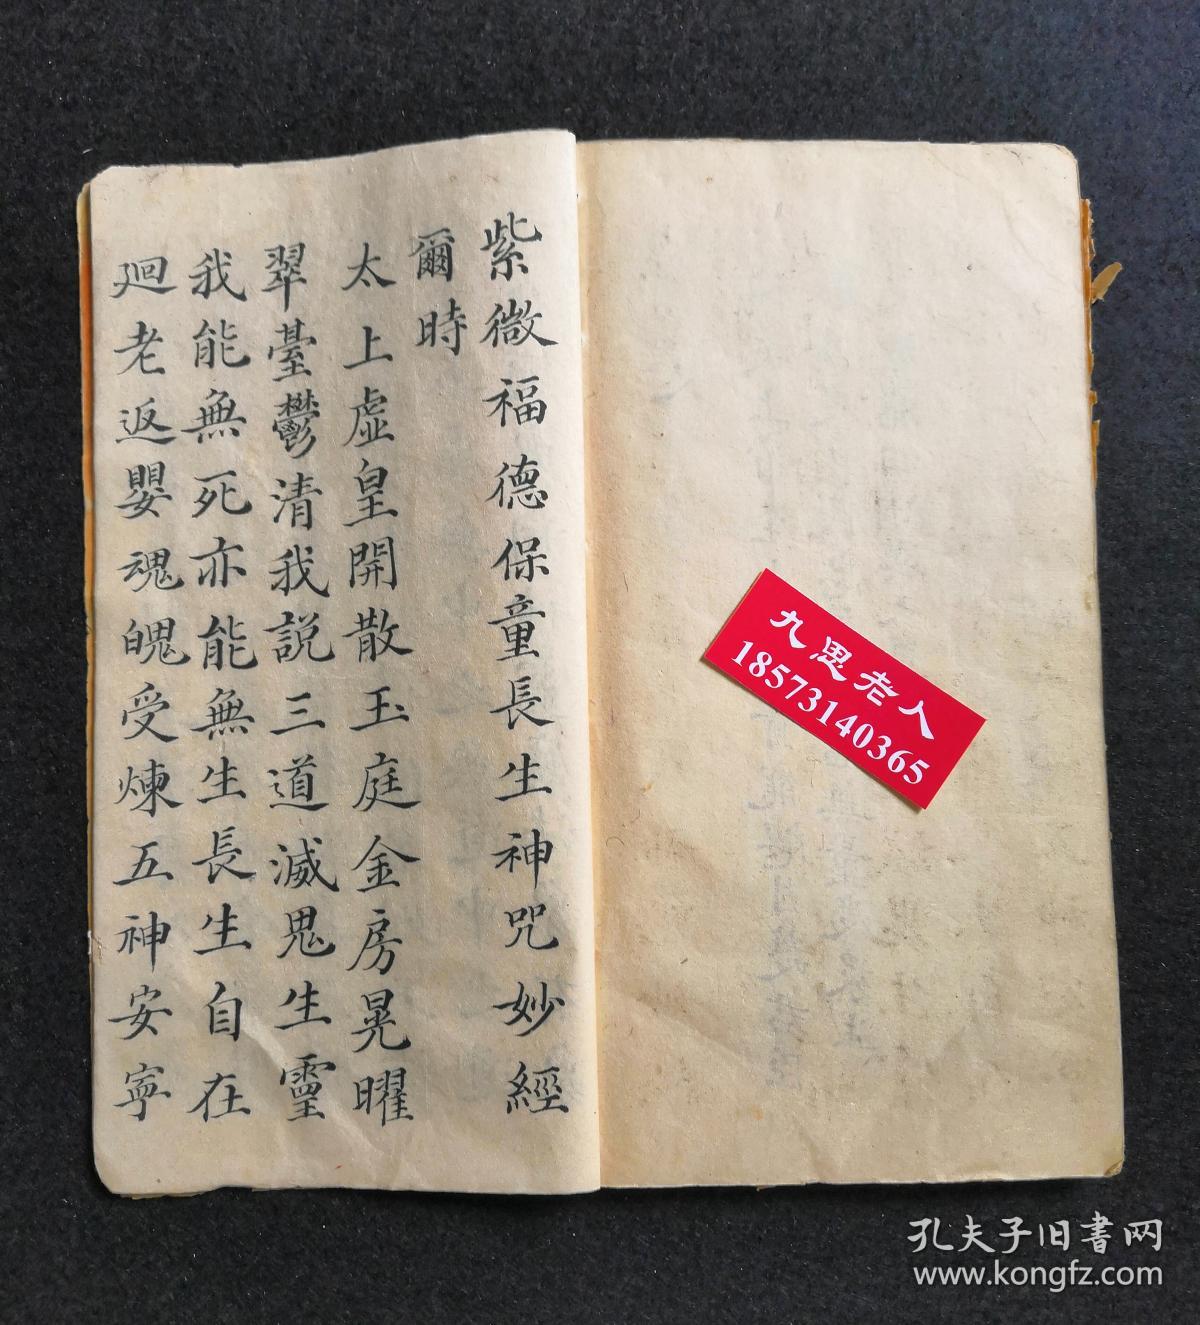 紫微福德保童長生神咒妙經
爾時
太上虛皇開散玉庭金房晃曜
翠臺鬱清我説三道滅鬼生靈
我能無死亦能無生長生自在
廻老返嬰魂魄受煉五神安寧
九思老人
18573140365
孔夫子旧书网
www.kongfz.com